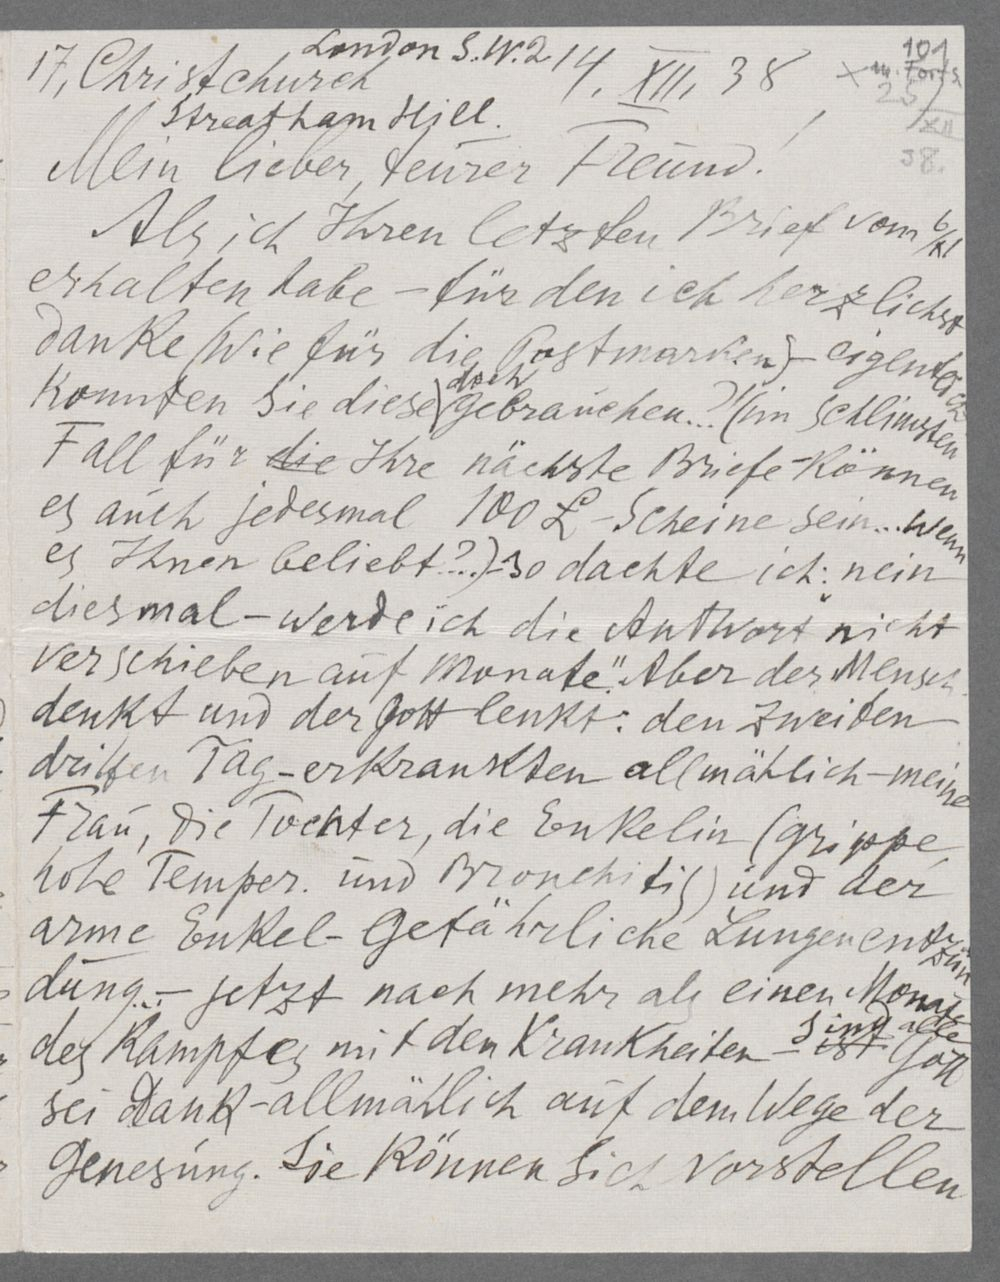 London S.W.2
17, Christchurch 14. XII. 38
Streatham Hill.
101
25/XII
38.
Mein lieber, teurer Freund!
Als ich Ihren letzten Brief vom 6/XI
erhalten habe – für den ich herzlichst
danke (wie für die Postmarken) – eigentlich
konnten Sie diese doch gebrauchen..?! (im schlimsten
Fall für die Ihre nächste Briefe – können
es auch jedesmal 100 £ – Scheine sein... wenn
es Ihnen beliebt?..) – so dachte ich: nein
diesmal – werde ich die Antwort nicht
verschieben auf Monate". Aber der Mensch
denkt und der Gott lenkt: den zweiten
dritten Tag – erkrankten allmählich – meine
Frau, die Tochter, die Enkelin (grippe,
hohe Temper. und Bronchitis) und der
arme Enkel – Gefährliche Lungenentzün
dung... – jetzt nach mehr als einen Monate
des Kampfes mit den Krankheiten – ist sind alle Gott
sei Dank – allmählich auf dem Wege der
Genesung. Sie können sich vorstellen